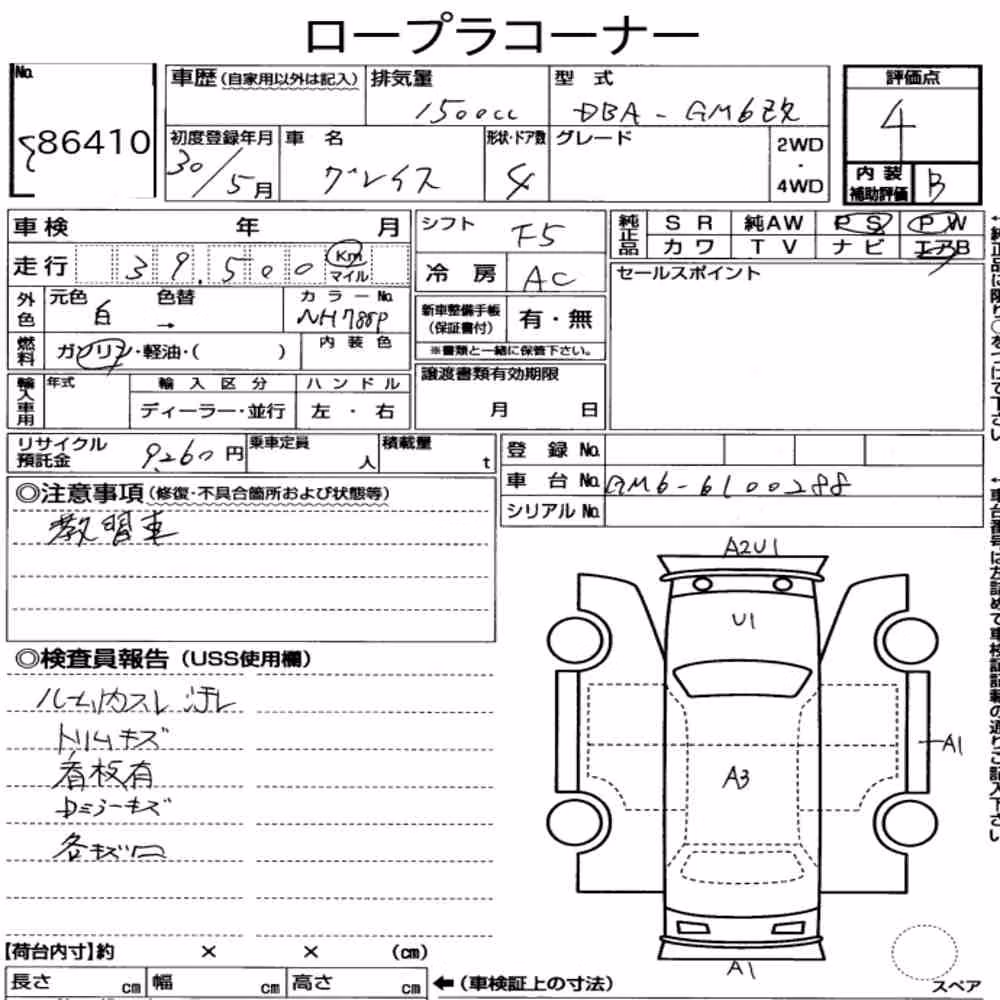 ロープラコーナー
No.
86410
車歴(自家用以外は記入)
排気量
1500cc
型式
DBA-GM6改
評価点
4
初度登録年月
30/5月
車名
グレイス
形状・ドア数
4
グレード
2WD
・
4WD
内装
補助評価
B
車検 年 月
シフト
F5
純正品
SR 純AW PS PW
カワ TV ナビ エアB
走行 39,500 Km
マイル
冷房
AC
セールスポイント
外色
元色
白
色替
→
カラーNo.
NH788P
新車整備手帳
(保証書付)
有・無
※書類と一緒に保管下さい。
燃料
ガソリン・軽油・( )
内装色
輸入車用
年式
輸入区分
ディーラー・並行
ハンドル
左・右
譲渡書類有効期限
月 日
リサイクル
預託金
9,260円
乗車定員
人
積載量
t
登録No.
車台No.
GM6-6100288
シリアルNo.
◎注意事項(修復・不具合箇所および状態等)
教習車
◎検査員報告(USS使用欄)
ルーム内スレ 汚レ
トリムキズ
看板有
Dミラーキズ
各キズ凹
A2U1
U1
A3
A1
A1
スペア
【荷台内寸】約 × × (cm)
長さ cm 幅 cm 高さ cm
←(車検証上の寸法)
←純正品に限り○をつけて下さい
←車台番号は左詰めで車検証記載の通りご記入下さい